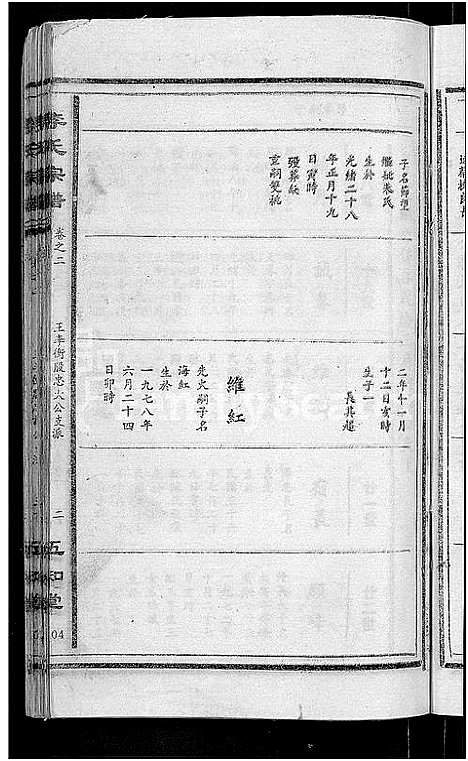 子名節望
繼桃朱氏
生於
光緒二十八
年正月十九
日寅時
歿葬缺
立嗣雙桃
二年十一月
十二日亥時
生子一
長其超
維紅
先火嗣子名
海紅
生於
一九七八年
六月二十四
日卯時
李氏宗譜
卷之二
王李衡股忠大公支派
二
五知堂
04